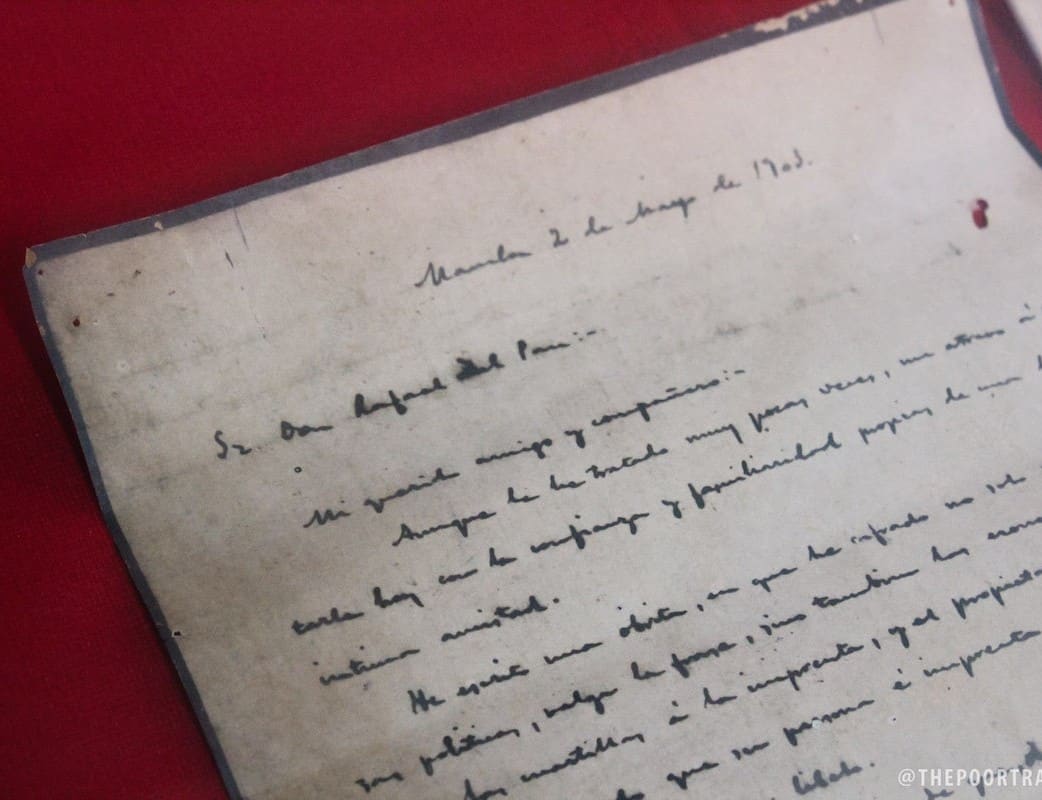 Manila 2 de Mayo de 1903.
Sr. Don Rafael Del Pan:-
Mi querido amigo y compañero:-
Aunque le he tratado muy pocas veces, me atrevo á
tarle hoy con la confianza y familiaridad propias de una
íntima amistad.
He escrito una obrita, en que he
politicos, valga la frase, sino también los
á la imprenta, y el
que su persona é imprenta
libelo.
@THEPOORTRA